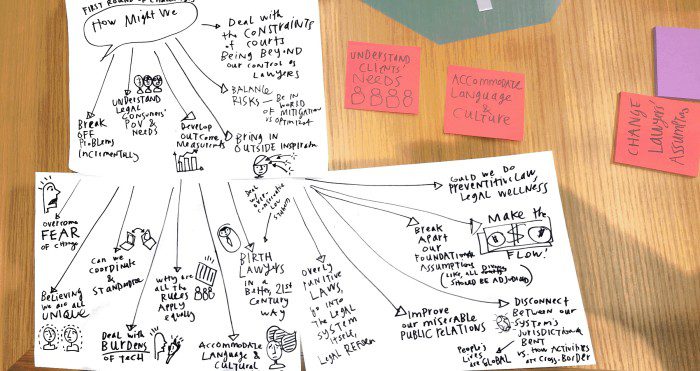 FIRST ROUND OF
How Might We
Deal with
the CONSTRAINTS
of COURTS
BEING BEYOND
our control as
LAWYERS
BALANCE
RISKS — BE IN
WORLD
OF MITIGATION
vs
BRING IN
OUTSIDE
Develop
OUTCOME
Measurements
UNDERSTAND
LEGAL
CONSUMERS'
POV & NEEDS
Break
OFF
PROBLEMS
INCREMENTALLY
UNDERSTAND
CLIENTS'
NEEDS
ACCOMMODATE
LANGUAGE
&
CULTURE
CHANGE
LAWYERS'
ASSUMPTIONS
OVERCOME
FEAR
OF change
Believing
we are all
UNIQUE
Can we
COORDINATE
&
STANDARDIZE
Deal with
BURDENS
OF TECH
Why are
all the
RULES
APPLY
equally
ACCOMMODATE
LANGUAGE &
CULTURAL
BIRTH
LAWYERS
IN a
Better, 21st
CENTURY
WAY
Deal
w/ over-
Law
students
OVERLY
PUNITIVE
LAWS,
go INTO
THE LEGAL
SYSTEM
ITSELF,
LEGAL REFORM
COULD WE DO
PREVENTITIVE LAW,
LEGAL WELLNESS
MAKE the
$ $
FLOW!
BREAK
APART
OUR
FOUNDATIONAL
ASSUMPTIONS
(LIKE, ALL
SHOULD BE ADJUDICATED)
IMPROVE
our MISERABLE
PUBLIC RELATIONS
DISCONNECT
BETWEEN OUR
SYSTEM'S
JURISDICTIONAL
BENT
VS. HOW ACTIVITIES
ARE CROSS-BORDER
PEOPLE'S
LIVES
are GLOBAL